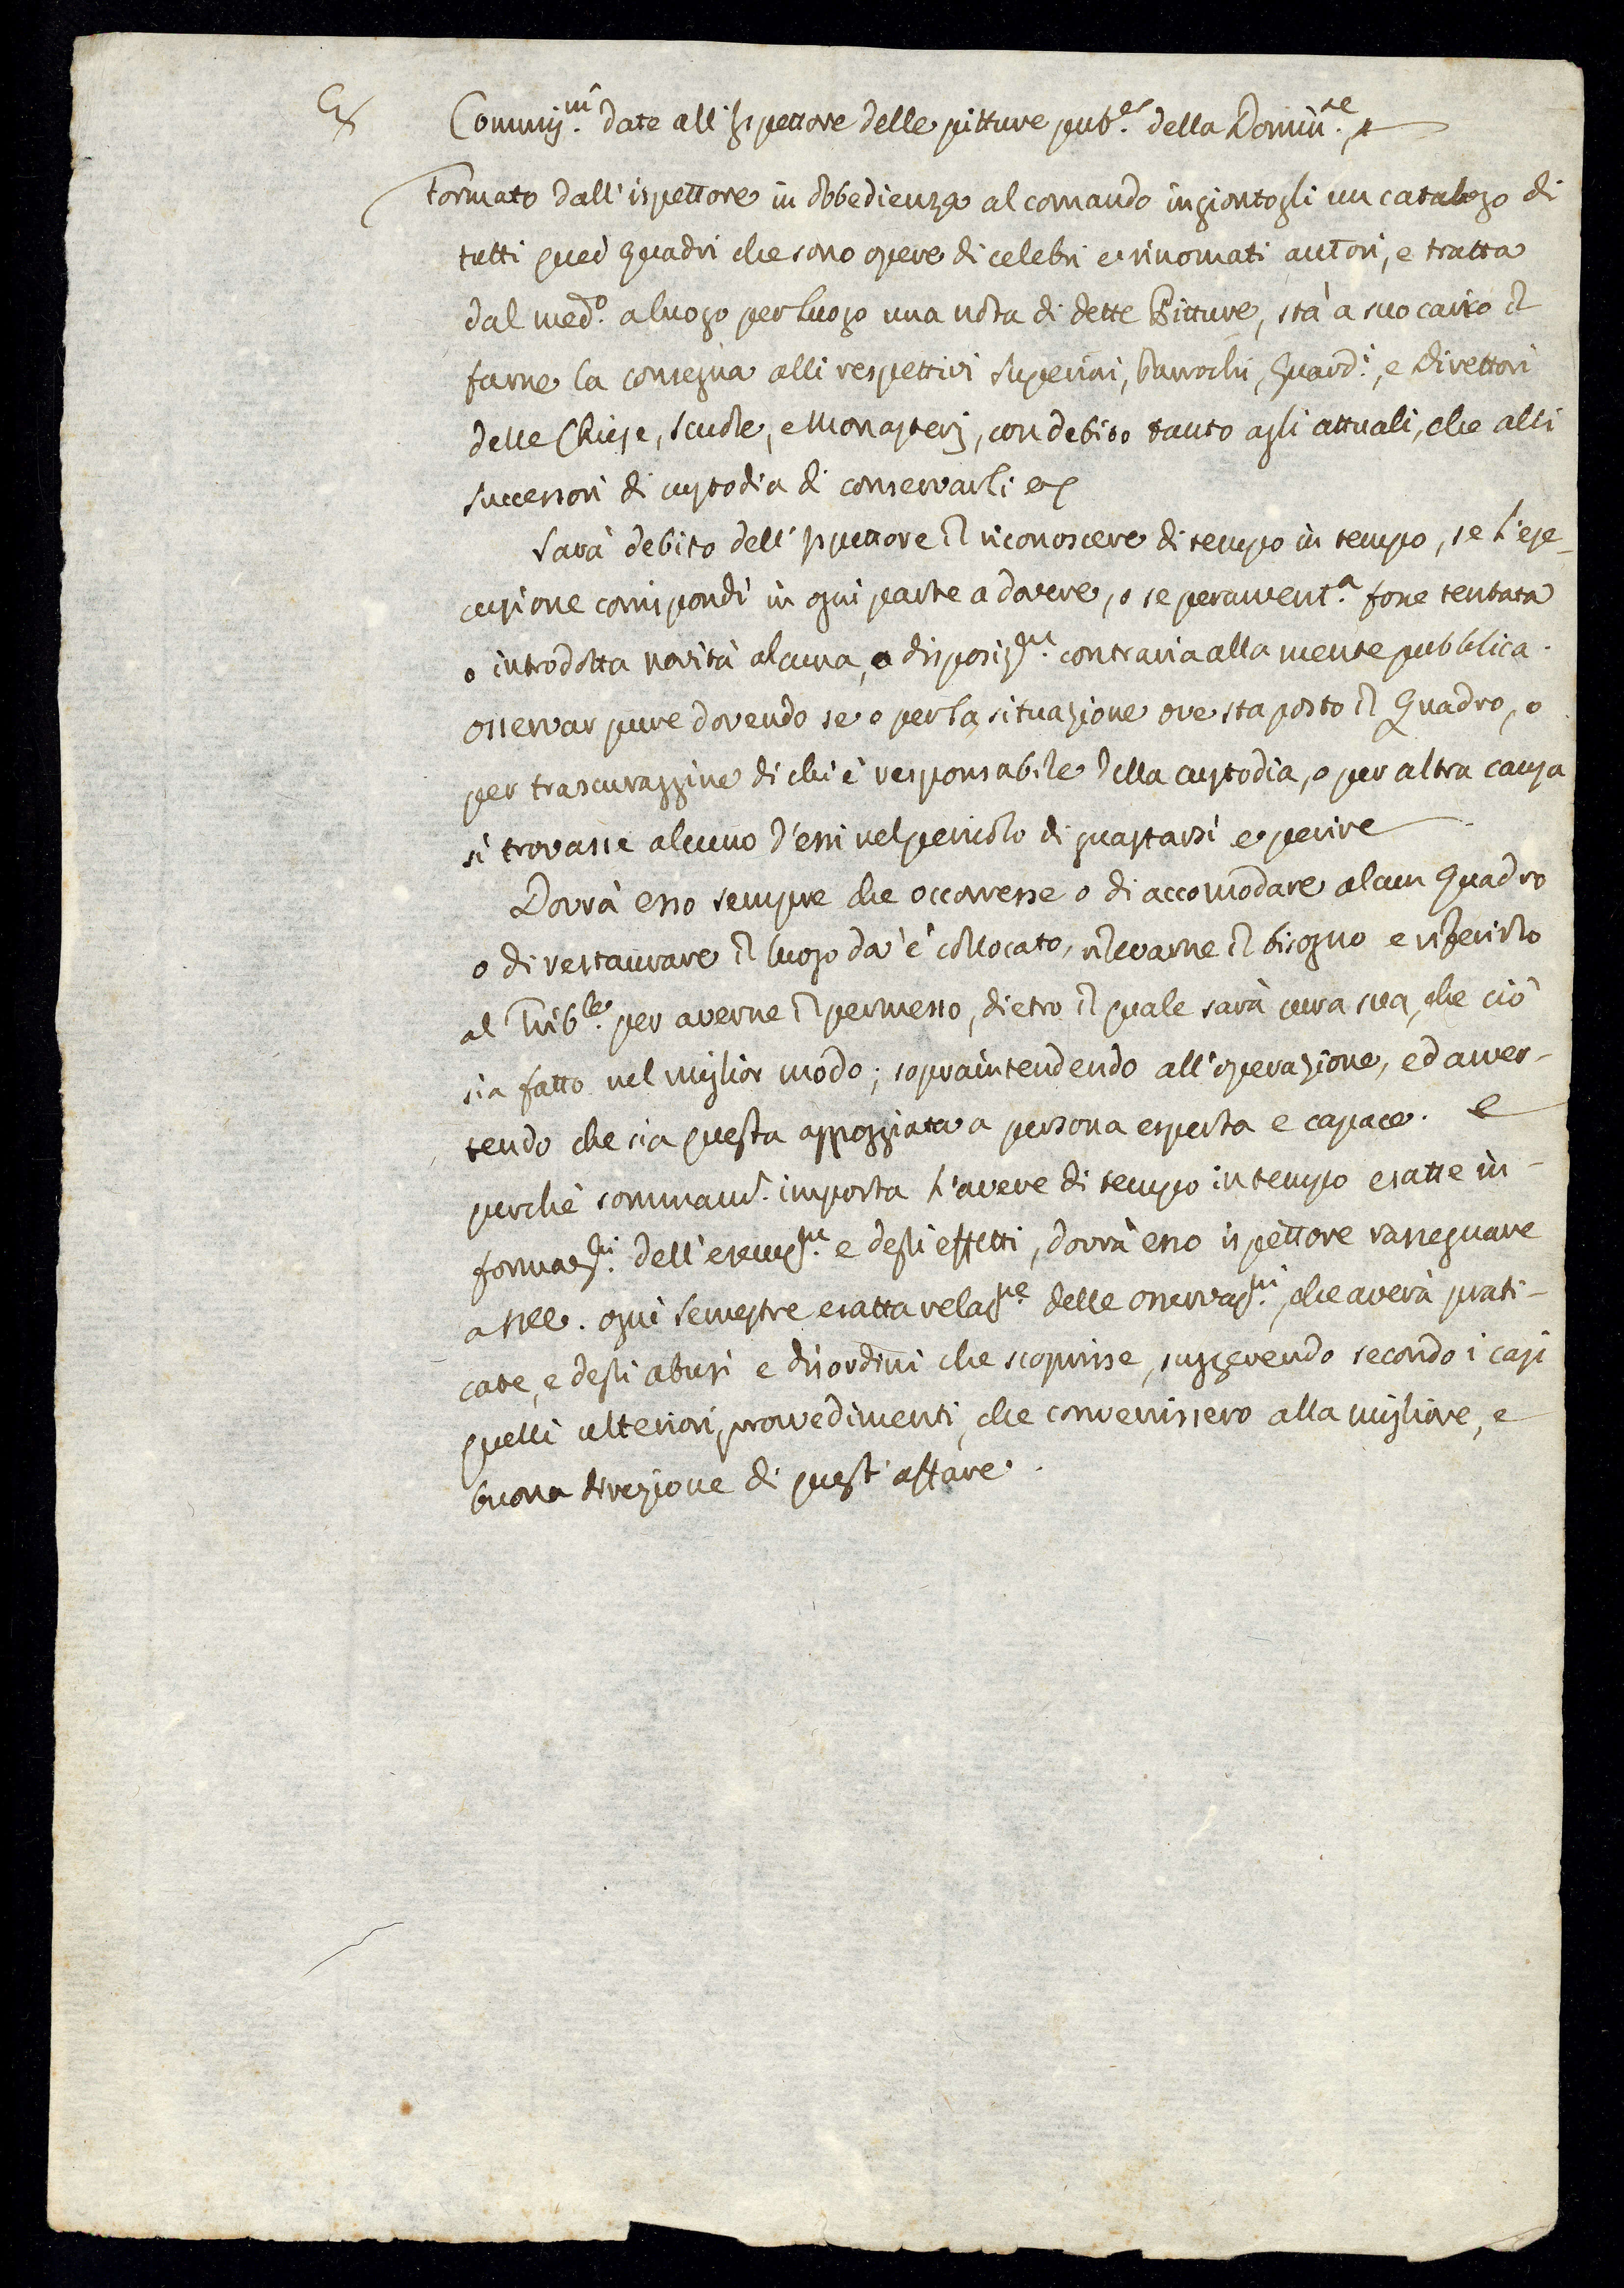 Commis.ni date all'Ispettore delle pitture pub.e della Domin.te
Formato dall'ispettore in obbedienza al comando ingiontogli un catalogo di
tutti quei Quadri che sono opere di celebri e rinomati autori, e tratta
dal med.o a luogo per luogo una nota di dette Pitture, stà a suo carico il
farne la consegna alli respettivi Superiori, Parrochi, Guard.i, e Direttori
delle Chiese, Scuole, e Monasterj, con debito tanto agli attuali, che alli
successori di custodia di conservarli
Sarà debito dell'Ispettore il riconoscere di tempo in tempo, se l'ese-
cuzione corrispondi in ogni parte a dovere, o se peravvent.a fosse tentata
o introdotta novità alcuna, o disposiz.ne contraria alla mente pubblica.
osservar pure dovendo se o per la situazione ove sta posto il Quadro, o
per trascuraggine di chi è responsabile della custodia, o per altra causa
si trovasse alcuno d'essi nel pericolo di guastarsi e perire
Dovrà esso sempre che occorresse o di accomodare alcun Quadro
o di restaurare il luogo da è collocato, rilevarne il bisogno e riferirlo
al Trib.le per averne il permesso, dietro il quale sarà cura sua, che ciò
sia fatto nel miglior modo; sopraintendendo all'operazione, ed avver-
tendo che sia questa appoggiata a persona esperta e capace. e
perchè sommam.e importa l'avere di tempo in tempo esatte in-
formaz.ni dell'esecuz.ne e degli effetti, dovrà esso ispettore rassegnare
a SSEE. ogni semestre esatta relaz.ne delle osservaz.ni, che averà prati-
cate, e degli abusi e disordini che scoprisse, suggerendo secondo i casi
quelli ulteriori provvedimenti, che convenissero alla migliore, e
buona direzione di quest'affare.